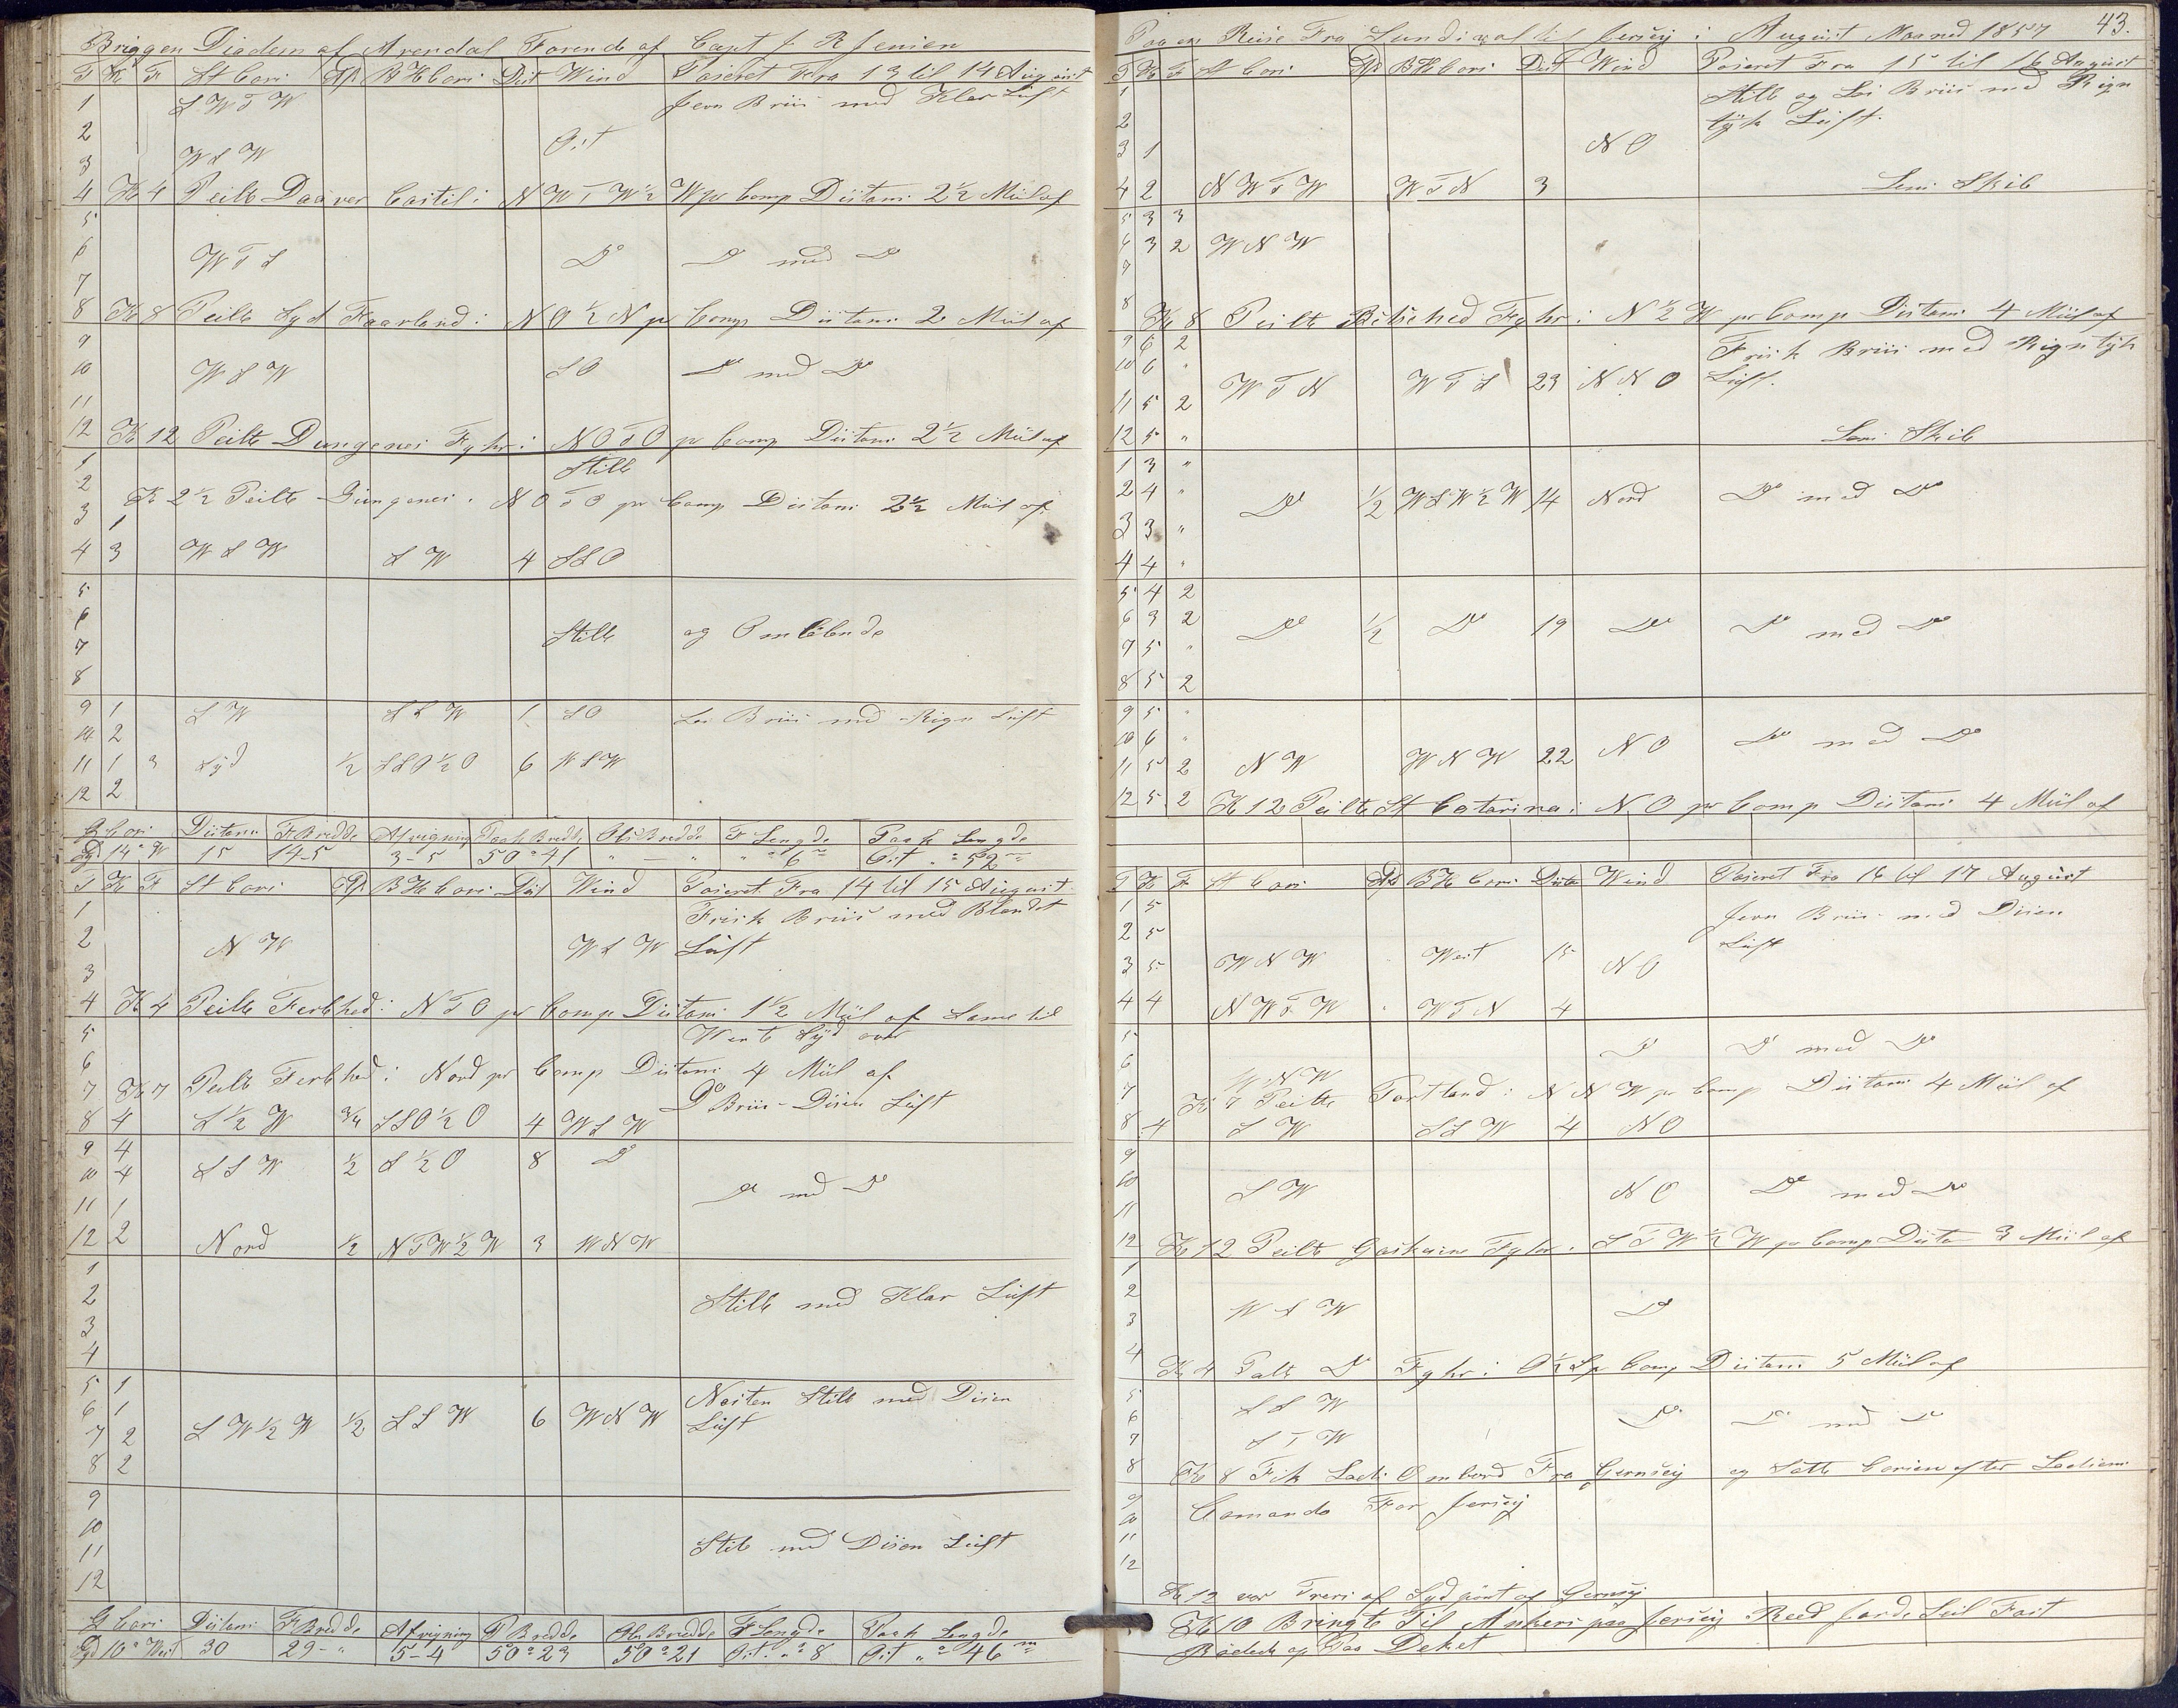 Briggen Diadem af Arendal Førende af Capt J. R Jensen
T K F St Cors Afd B H Cors Dist Wind Paseret Fra 13 til 14 August
1 S W T W Jevn Briis med Klar Luft
2 Ost
3 W S W
4 Kl 4 Peilte Daaver Castil i N W T W ½ W pr Comp Distans 2½ Miil af
5
6 W T S Do Do med Do
7
8 Kl 8 Peilte Syd Faarland i N O ½ N pr Comp Distans 2 Miil af
9
10 W S W S O Do med Do
11
12 Kl 12 Peilte Dungenes Fyhr i N O T O pr Comp Distans 2½ Miil af
1 Stille
2 Kl 2½ Peilte Dungenes i N O T O pr Comp Distans 2½ Miil af
3 1
4 3 W S W S W 4 S S O
5
6 Stille og Omløbende
7
8
9 1 S W S S W 1 S O Løi Briis med Regn Luft
10 2
11 1 3 Syd ½ S S O ½ O 6 W S W
12 2
G Cors Distans F Bredde Afvigning Paak Bredde Obs Bredde F Lengde Paak Lengde
Syd 14° W 15 14-5 3-5 50°41 " — " " " 6 Ost " : 52 m
T K F St Cors Afd B H Cors Dist Wind Paseret Fra 14 til 15 August
1 Frisk Briis med Blandet
2 N W W S W Luft
3
4 Kl 4 Peilte Ferlehed i N T O pr Comp Distans 1½ Miil af Samt til
5 Vente Syd over
6
7 Kl 7 Peilte Ferlehed i Nord pr Comp Distans 4 Miil af
8 4 S ½ W ¾ S S O ½ O 4 W S W Do Briis - Disen Luft
9 4
10 4 S S W ½ S ½ O 8 Do
11 1 Do med Do
12 2 Nord ½ N T W ½ W 3 W N W
1
2 Stille med Klar Luft
3
4
5 1 Nesten Stille med Disen
6 1 S W ½ W ½ S S W 6 W N W Luft
7 2
8 2
9
10
11 Stile med Disen Luft
12
G Cors Distans F Bredde Afvigning P Bredde Obs Bredde F Lengde Paak Lengde
Syd 10° West 30 29- " 5-4 50°23 50°21 Ost " : 8 Ost " : 46 m
Paa en Reise Fra Sundsval til Jersey i August Maaned 1857 43.
T K F St Cors Afd B H Cors Dist Wind Paseret Fra 15 til 16 August
1 Stille og Løi Briis med Regn
2 tyk Luft.
3 1 N O
4 2 N W T W W T N 3 Lens Skib
5 3 3
6 3 2 W N W
7
8 Kl 8 Peilte Betsehed Fyhr i N ½ W pr Comp Distans 4 Miil af
9 6 2 Frisk Briis med Regn tyk
10 6 " W T N W T S 23 N N O Luft.
11 5 2
12 5 " Lens Skib
1 3 "
2 4 " Do ½ W S W ½ W 14 Nord Do med Do
3 3 "
4 4 "
5 4 2
6 3 2 Do ½ Do 19 Do Do med Do
7 5 "
8 5 2
9 5 "
10 6 " N O Do med Do
11 5 2 N W W N W 22
12 5 2 Kl 12 Peilte St Catarina i N O pr Comp Distans 4 Miil af
T K F St Cors Afd B H Cors Dista Wind Paseret Fra 16 til 17 August
1 5 Jevn Briis med Disen
2 5 Luft
3 5 W N W West 15 N O
4 4 N W T W W T N 4
5
6 W N W Do Do med Do
7 Kl 7 Peilte Portland i N N W pr Comp Distans 4 Miil af
8 4 S W S S W 4 N O
9
10 S W N O Do med Do
11
12 Kl 12 Peilte Gaskains Fyhr i S T W ½ W pr Comp Dista 3 Miil af
1
2
3 W S W Do
4 Kl 4 Palt Do Fyhr i O ½ S pr Comp Distans 5 Miil af
5 S S W
6 Do Do med Do
7 S T W
8 Kl 8 Fik Lods Ombord Fra Gernsey og Satte Corsen efter Lodsens
9 Comando For Jersey
10
11
12
Kl 12 var Tvers af Syd pönt af Gernsey
Kl 10 Bringte Til Ankers paa Jersey Reed Jorde Seil Fast
og Paa Deket